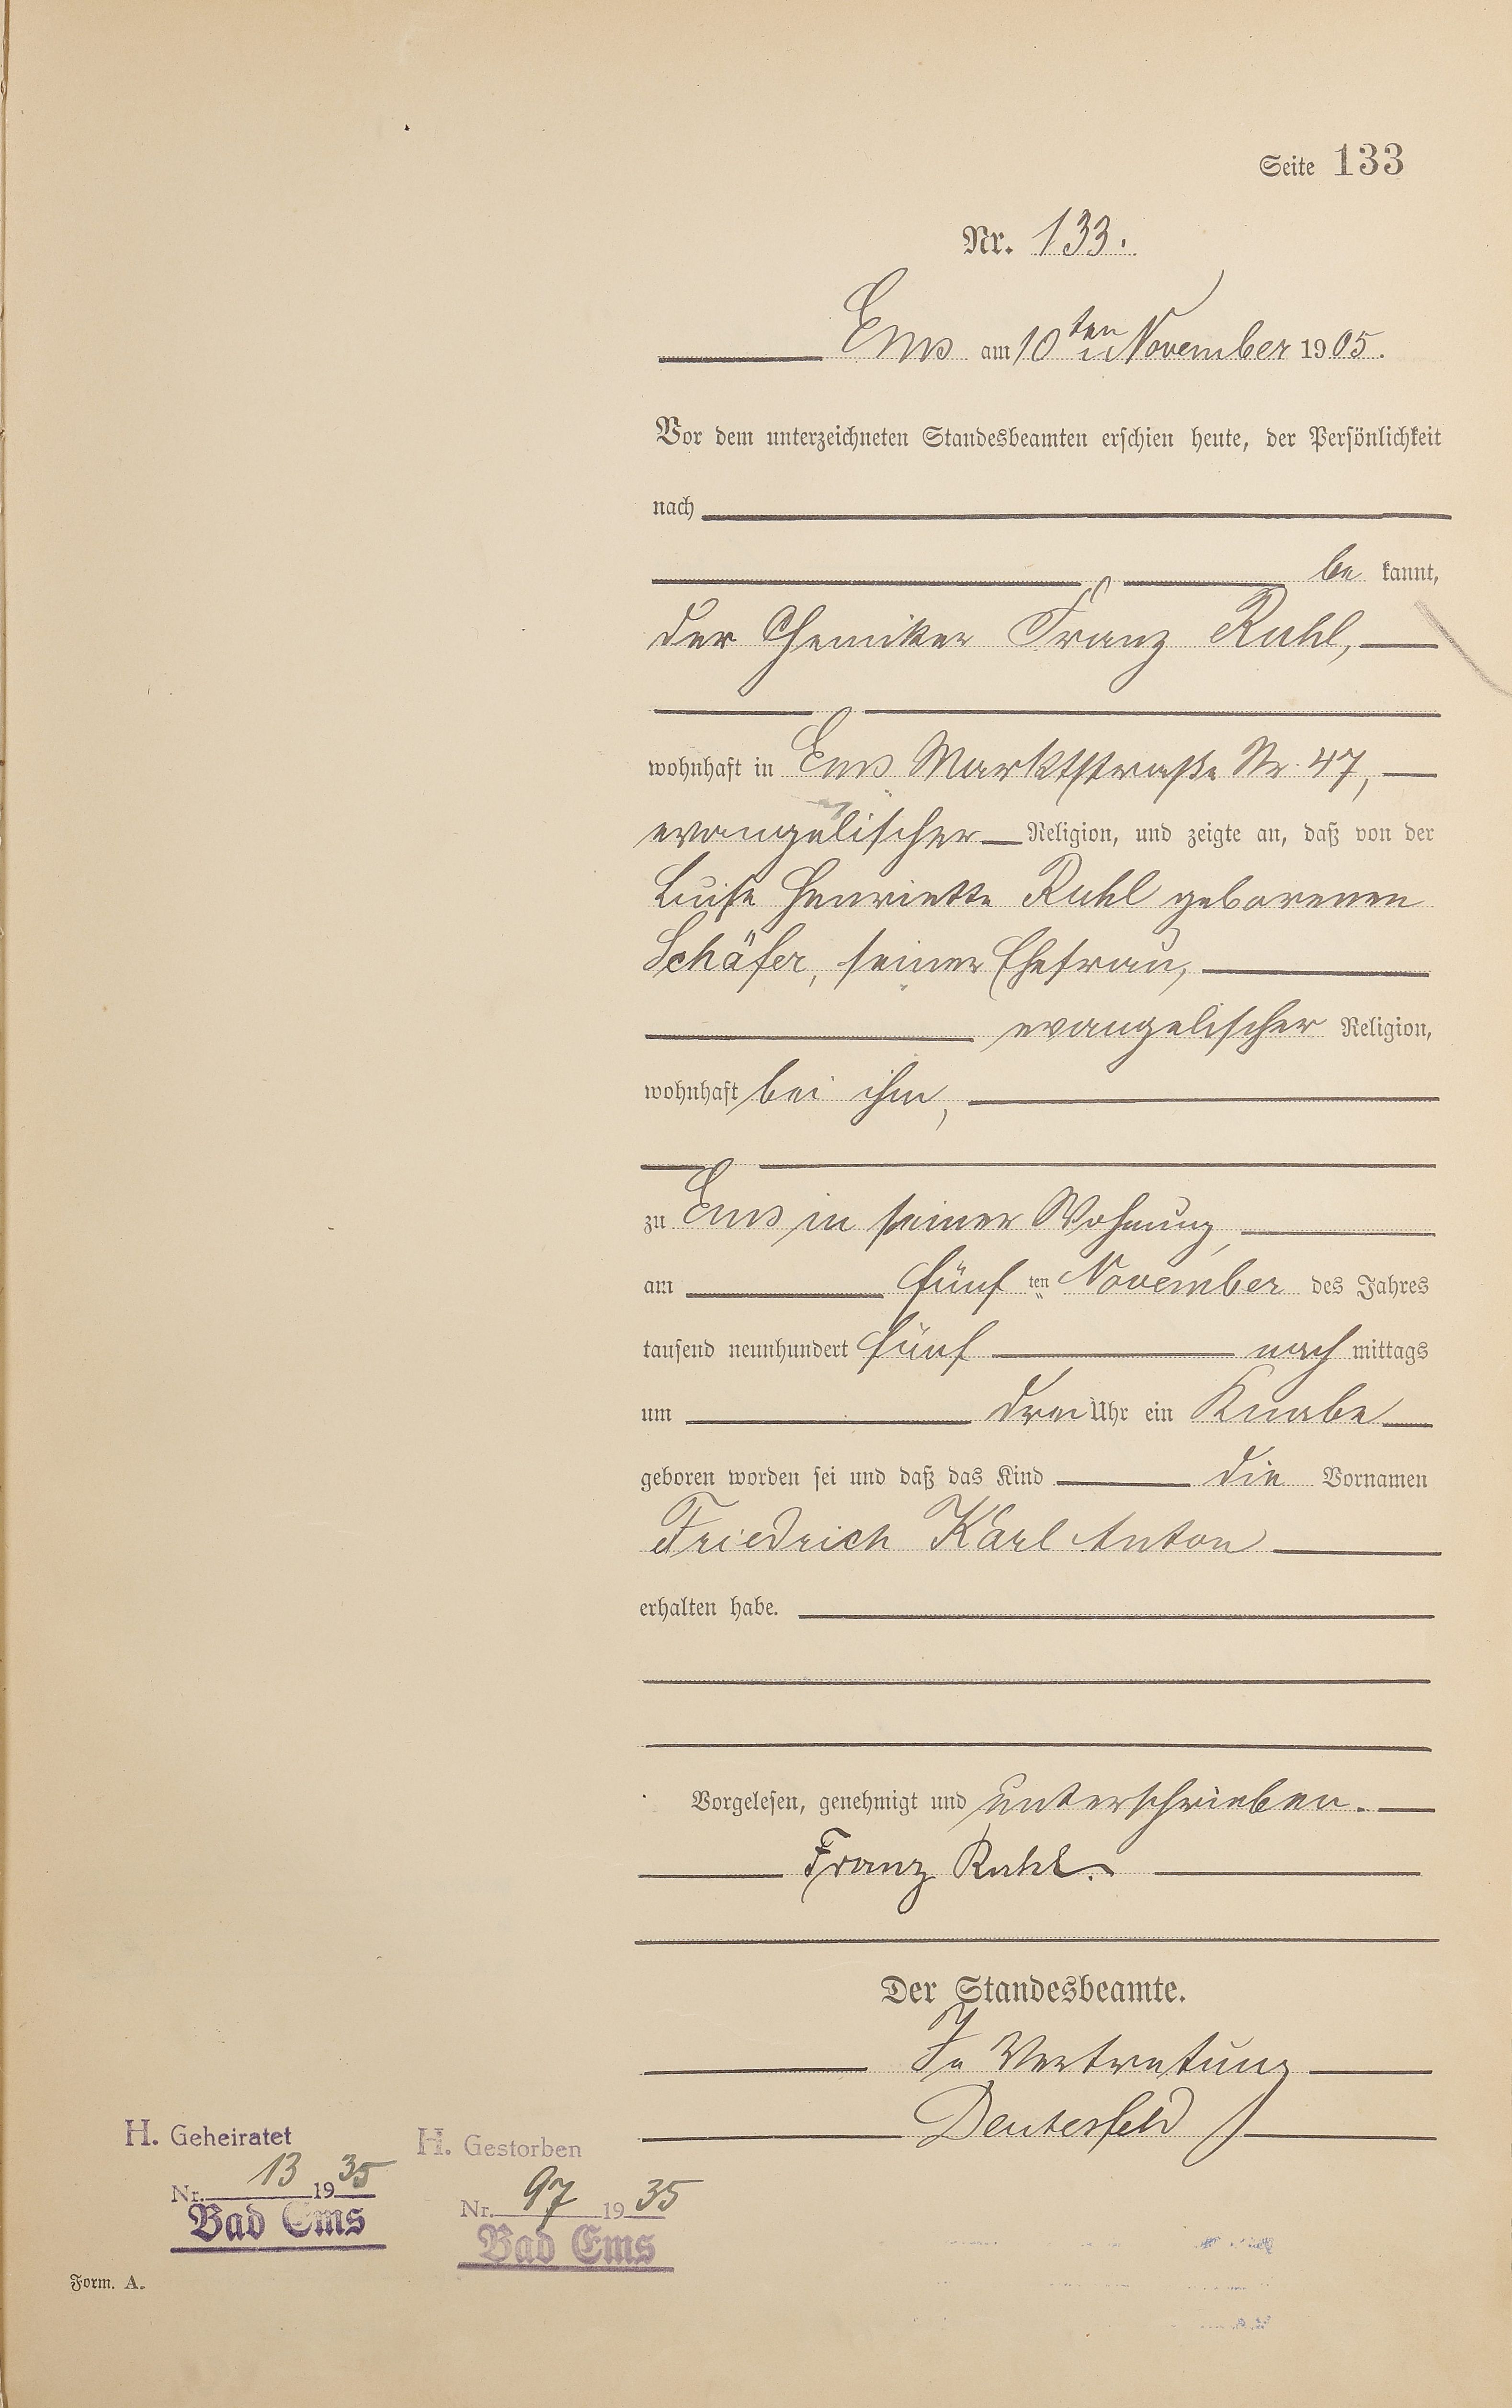 Seite 133
Nr. 133.
Ems am 10ten November 1905.
Vor dem unterzeichneten Standesbeamten erschien heute, der Persönlichkeit
nach
be kannt,
der Chemiker Franz Ruhl,
wohnhaft in Ems Marktstraße Nr. 47,
evangelischer Religion, und zeigte an, daß von der
Luise Henriette Ruhl geborenen
Schäfer, seiner Ehefrau,
evangelischer Religion,
wohnhaft bei ihm,
zu Ems in seiner Wohnung,
am fünf ten November des Jahres
tausend neunhundert fünf nach mittags
um drei Uhr ein Knabe
geboren worden sei und daß das Kind die Vornamen
Friedrich Karl Anton
erhalten habe.
Vorgelesen, genehmigt und unterschrieben.
Franz Ruhl.
Der Standesbeamte.
In Vertretung
Deutesfeld
H. Geheiratet
Nr. 13 1935
Bad Ems
H. Gestorben
Nr. 97 1935
Bad Ems
Form. A.